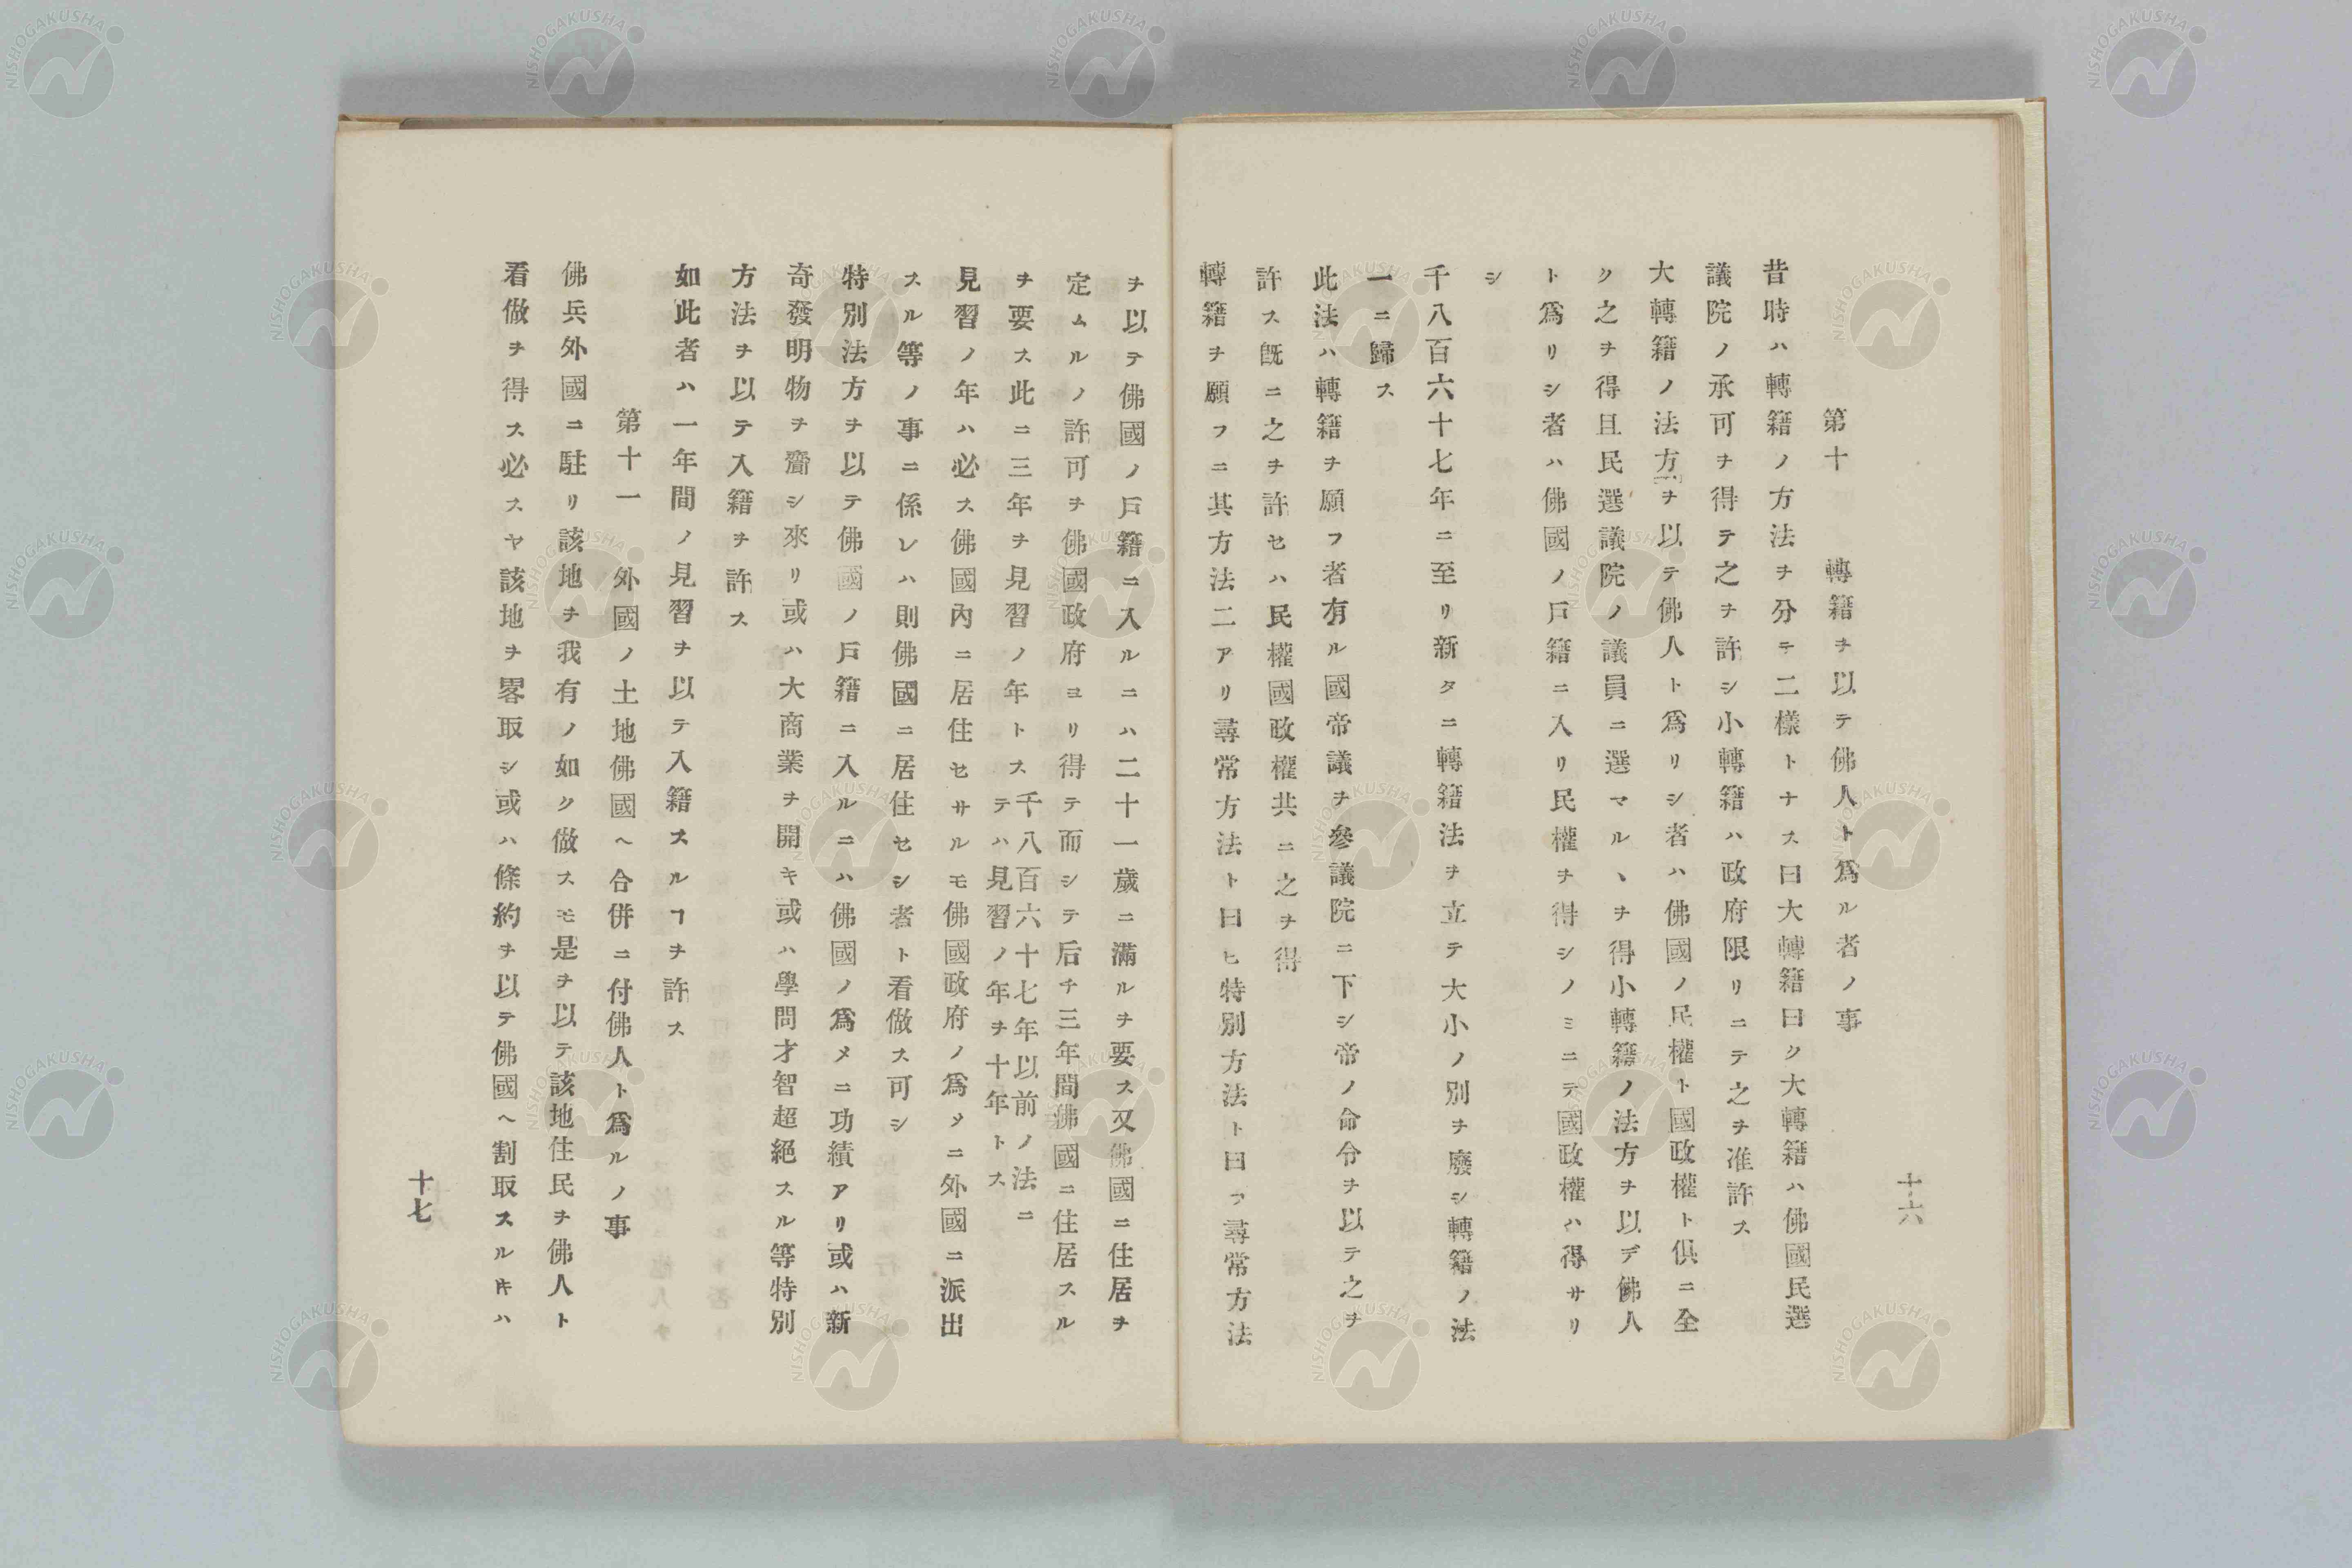 第十　轉籍ヲ以テ佛人ト爲ル者ノ事
昔時ハ轉籍ノ方法ヲ分テ二樣トナス曰大轉籍曰ク大轉籍ハ佛國民選
議院ノ承可ヲ得テ之ヲ許シ小轉籍ハ政府限リニテ之ヲ准許ス
大轉籍ノ法方ヲ以テ佛人ト爲リシ者ハ佛國ノ民權ト國政權ト俱ニ全
ク之ヲ得且民選議院ノ議員ニ選マルヽヲ得小轉籍ノ法方ヲ以テ佛人
ト爲リシ者ハ佛國ノ戸籍ニ入リ民權ヲ得シノミニテ國政權ハ得サリ
シ
千八百六十七年ニ至リ新タニ轉籍法ヲ立テ大小ノ別ヲ廢シ轉籍ノ法
一ニ歸ス
此法ハ轉籍ヲ願フ者有ル國帝議ヲ參議院ニ下シ帝ノ命令ヲ以テ之ヲ
許ス既ニ之ヲ許セハ民權國政權共ニ之ヲ得
轉籍ヲ願フニ其方法二アリ尋常方法ト曰ヒ特別方法ト曰フ尋常方法
十六
ヲ以テ佛國ノ戸籍ニ入ルニハ二十一歲ニ滿ルヲ要ス又佛國ニ住居ヲ
定ムルノ許可ヲ佛國政府ヨリ得テ而シテ后チ三年間佛國ニ住居スル
ヲ要ス此ニ三年ヲ見習ノ年トス千八百六十七年以前ノ法ニ
テハ見習ノ年ヲ十年トス
見習ノ年ハ必ス佛國內ニ居住セサルモ佛國政府ノ爲メニ外國ニ派出
スル等ノ事ニ係レハ則佛國ニ居住セシ者ト看做ス可シ
特別法方ヲ以テ佛國ノ戸籍ニ入ルニハ佛國ノ爲メニ功績アリ或ハ新
奇發明物ヲ齎シ來リ或ハ大商業ヲ開キ或ハ學問才智超絕スル等特別
方法ヲ以テ入籍ヲ許ス
如此者ハ一年間ノ見習ヲ以テ入籍スルヿヲ許ス
第十一　外國ノ土地佛國ヘ合併ニ付佛人ト爲ルノ事
佛兵外國ニ駐リ該地ヲ我有ノ如ク做スモ是ヲ以テ該地住民ヲ佛人ト
看做ヲ得ス必スヤ該地ヲ畧取シ或ハ條約ヲ以テ佛國ヘ割取スル𪜈ハ
十七
NISHOGAKUSHA